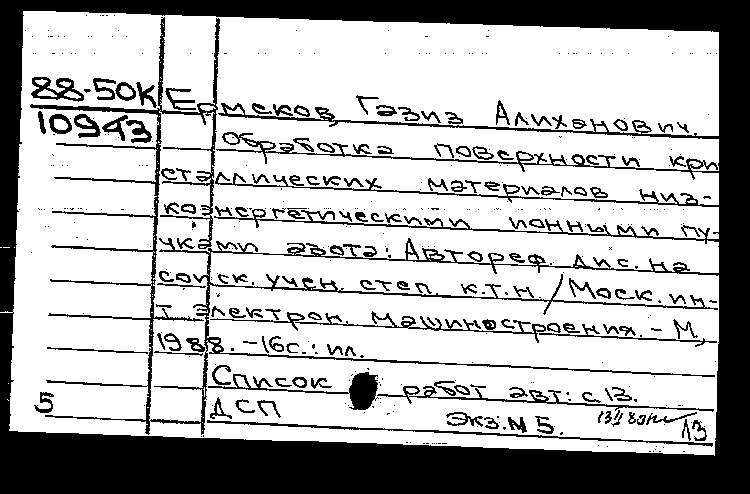 88-50К Ермеков, Газиз Алиханович.
10943 Обработка поверхности кри
сталлических материалов низ-
коэнергетическими ионными пу-
чками азота: Автореф. дис. на
соиск. учен. степ. к.т.н / Моск. ин-
т электрон. машиностроения. - М,
1988. - 16с.: ил.
Список работ авт: с. 13.
5 ДСП Экз. № 5. 13